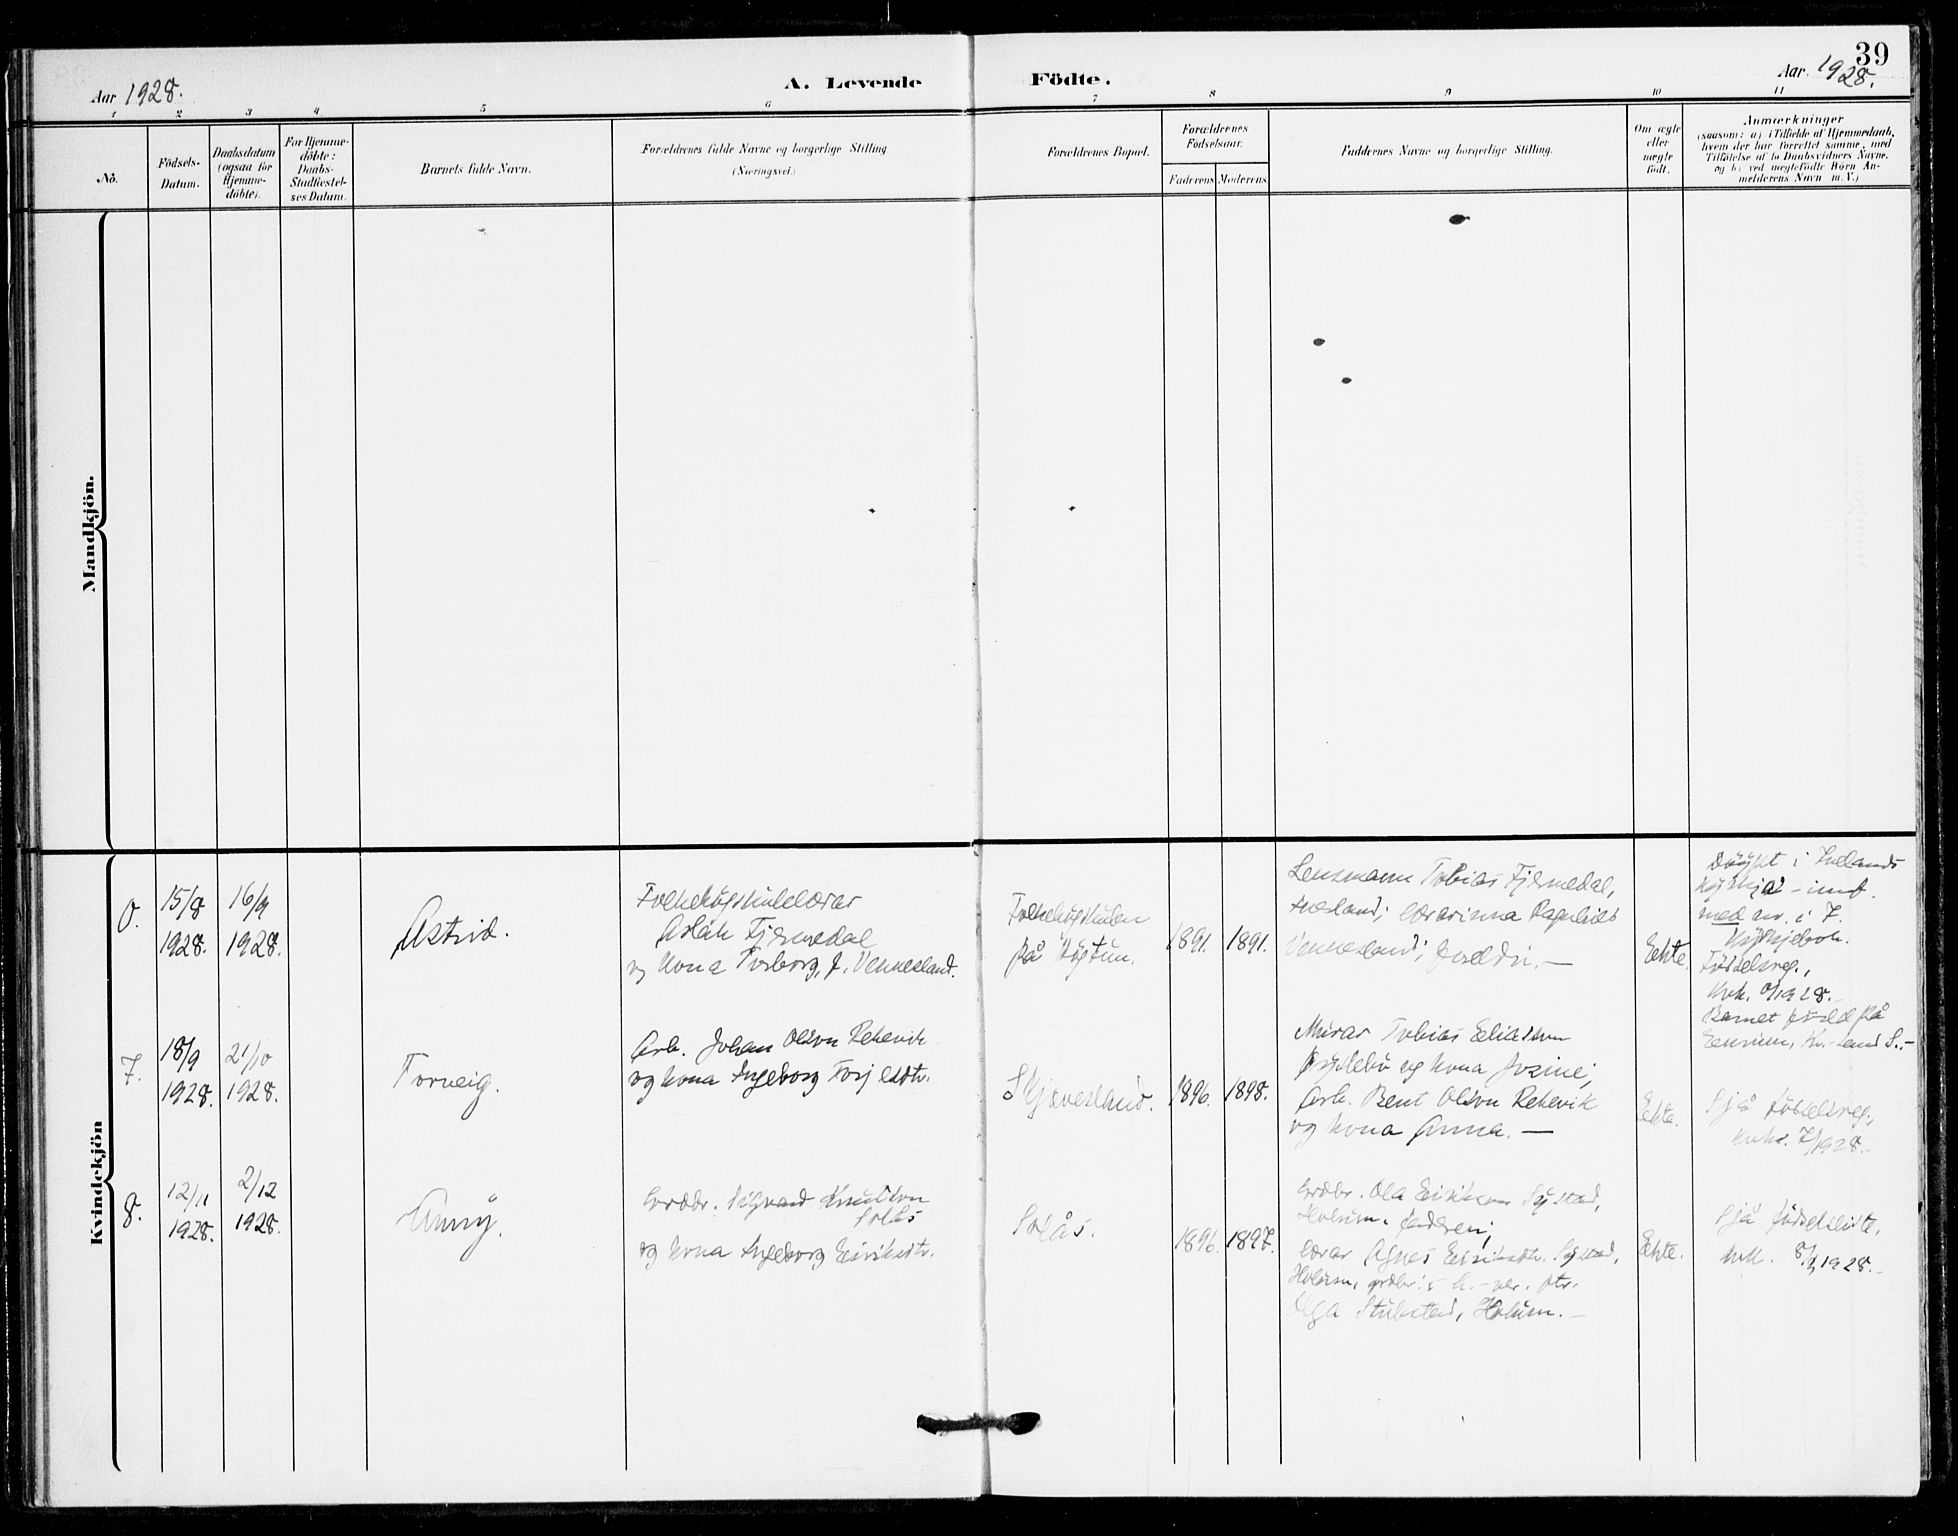 39
Aar 1928.
A. Levende Födte.
Aar. 1928.
1 2 3 4 5 6 7 8 9 10 11
No.
Födsels-
Datum.
Daabsdatum
(ogsaa for
Hjemme-
döbte).
For Hjemme-
döbte:
Daabs-
Stadfestel-
ses Datum.
Barnets fulde Navn.
Forældrenes fulde Navne og borgerlige Stilling
(Næringsvei.)
Forældrenes Bopæl.
Forældrenes
Födselsaar.
Faderens Moderens
Faddernes Navne og borgerlige Stilling.
Om ægte
eller
uægte
födt.
Anmærkninger
(saasom: a) i Tilfælde af Hjemmedaab,
hvem der har forrettet samme, med
Tilföielse af to Daabsvidners Navne,
og b) ved uægtefödte Börn An-
melderens Navn m. V.)
Mandkjön.
Kvindekjön
0.
15/8
1928.
16/9
1928.
Astrid.
Folkehøgskulelærar
Aslak Fjermedal
og kona Torborg, f. Vennesland.
Folkehøgskulen
på Høgtun.
1891.
1891.
Lensmann Tobias Fjermedal,
lærarinna Ragnhild
Vennesland; foreldri.—
Ekte.
Døypt i
med nr. i 7.
Kyrkjebok.
Fødselsreg.,
kvk. 0/1928.
Barnet på
7.
18/9
1928.
21/10
1928.
Torveig.
Arb. Johan Olson Rekevik
og kona Ingeborg
Skjævesland.
1896.
1898.
Murar Tobias
og kona Josine;
Arb. Bent Olson Rekevik
og kona Anna. —
Ekte.
Sjå fødselsreg.,
kvk. 7/1928.
8.
12/11
1928.
2/12
1928.
Anny.
Gardbr. Sigvard Knutson
Solås
og kona Ingeborg Eiriksdtr.
Solås.
1896.
1897.
Gardbr. Ola Eirikson
Holum, faderen;
Lærar Agnes Eiriksdtr.
Holum, gardbr.
Olga Stubstad, Holum. —
Ekte.
Sjå fødselsliste,
kvk. 8/1928.